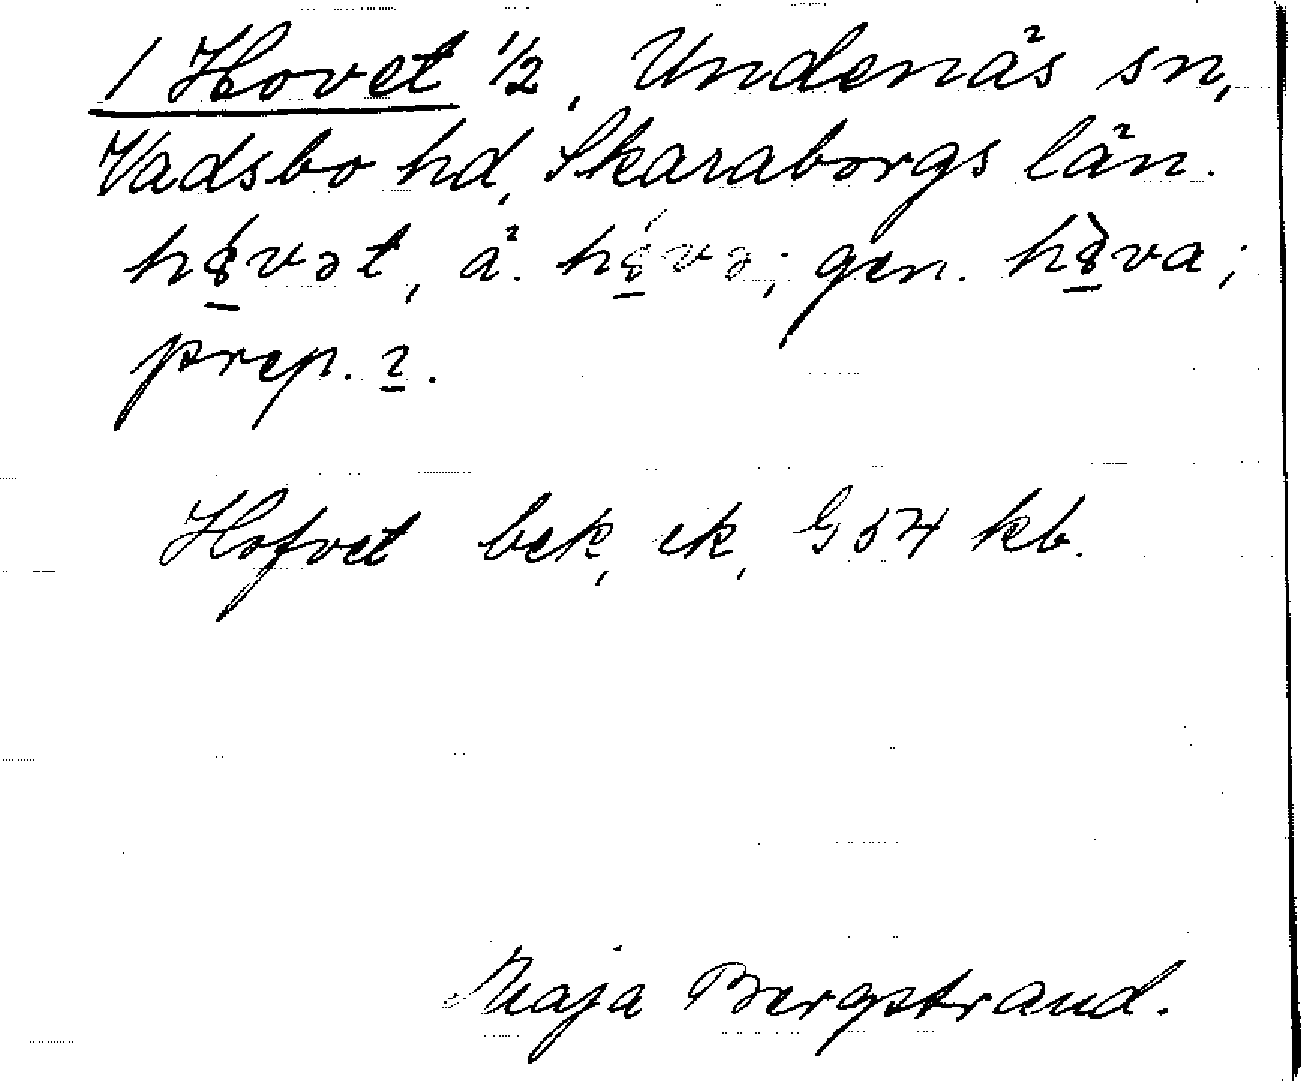 1 Hovet 1/2, Undenäs sn,
Vadsbo hd, Skaraborgs län.
gen.
prep. 2.
Hofvet bek, ek, G54 kb.
Maja Bergstrand.